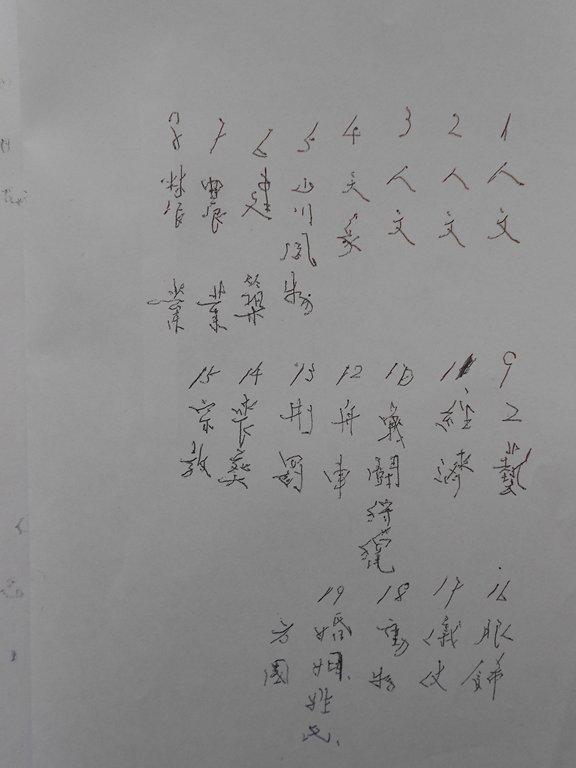 1 人文
2 人文
3 人文
4 天象
5 山川風物
6 建築
7 農業
8 林業
9 工藝
11 經濟
10 戰鬪
12 舟車
13 刑罰
14 喪葬
15 宗教
16 服飾
17 儀仗
18 動物
19 婚姻、姓氏、
方國